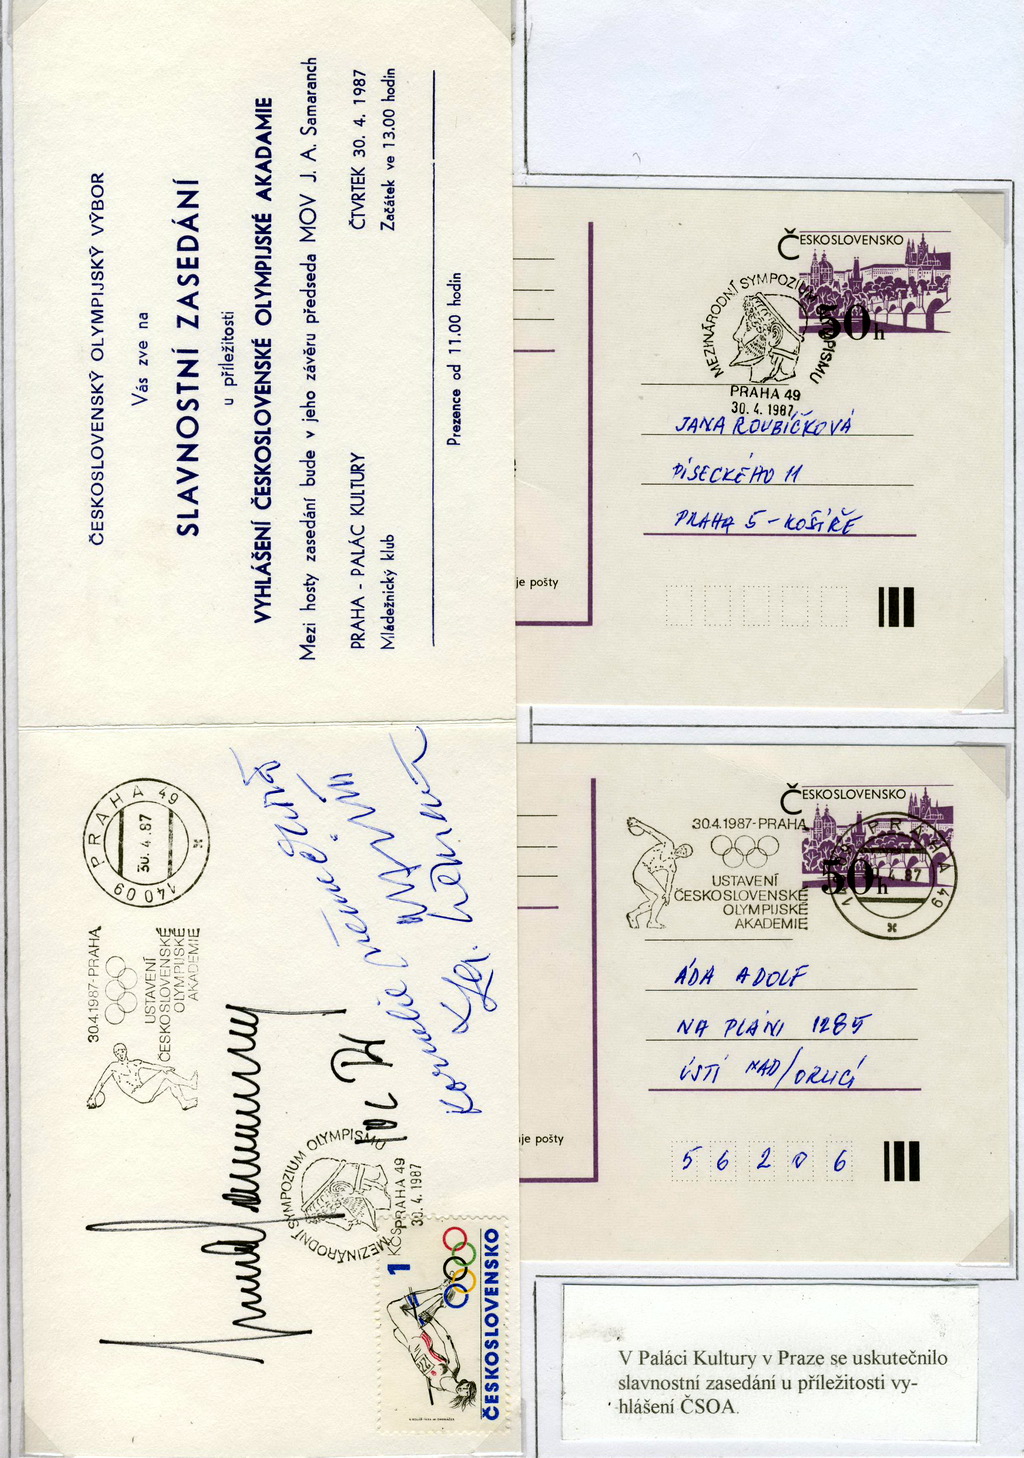 ČESKOSLOVENSKÝ OLYMPIJSKÝ VÝBOR
Vás zve na
SLAVNOSTNÍ ZASEDÁNÍ
u příležitosti
VYHLÁŠENÍ ČESKOSLOVENSKÉ OLYMPIJSKÉ AKADAMIE
Mezi hosty zasedání bude v jeho závěru předseda MOV J. A. Samaranch
PRAHA - PALÁC KULTURY ČTVRTEK 30. 4. 1987
Mládežnický klub Začátek ve 13.00 hodin
Prezence od 11.00 hodin
PRAHA 49
30.4.87
140 09
30.4.1987-PRAHA
USTAVENÍ
ČESKOSLOVENSKÉ
OLYMPIJSKÉ
AKADEMIE
MEZINÁRODNÍ SYMPOZIUM OLYMPISMU
PRAHA 49
30. 4. 1987
1 KČS
ČESKOSLOVENSKO
ČESKOSLOVENSKO
50h
MEZINÁRODNÍ SYMPOZIUM OLYMPISMU
PRAHA 49
30. 4. 1987
JANA ROUBÍČKOVÁ
PÍSECKÉHO 11
PRAHA 5 - KOŠÍŘE
je pošty
ČESKOSLOVENSKO
50h
30.4.1987-PRAHA
USTAVENÍ
ČESKOSLOVENSKÉ
OLYMPIJSKÉ
AKADEMIE
PRAHA 49
ÁDA ADOLF
NA PLÁNI 1285
ÚSTÍ NAD/ORLICÍ
je pošty
5 6 2 0 6
V Paláci Kultury v Praze se uskutečnilo
slavnostní zasedání u příležitosti vy-
hlášení ČSOA.